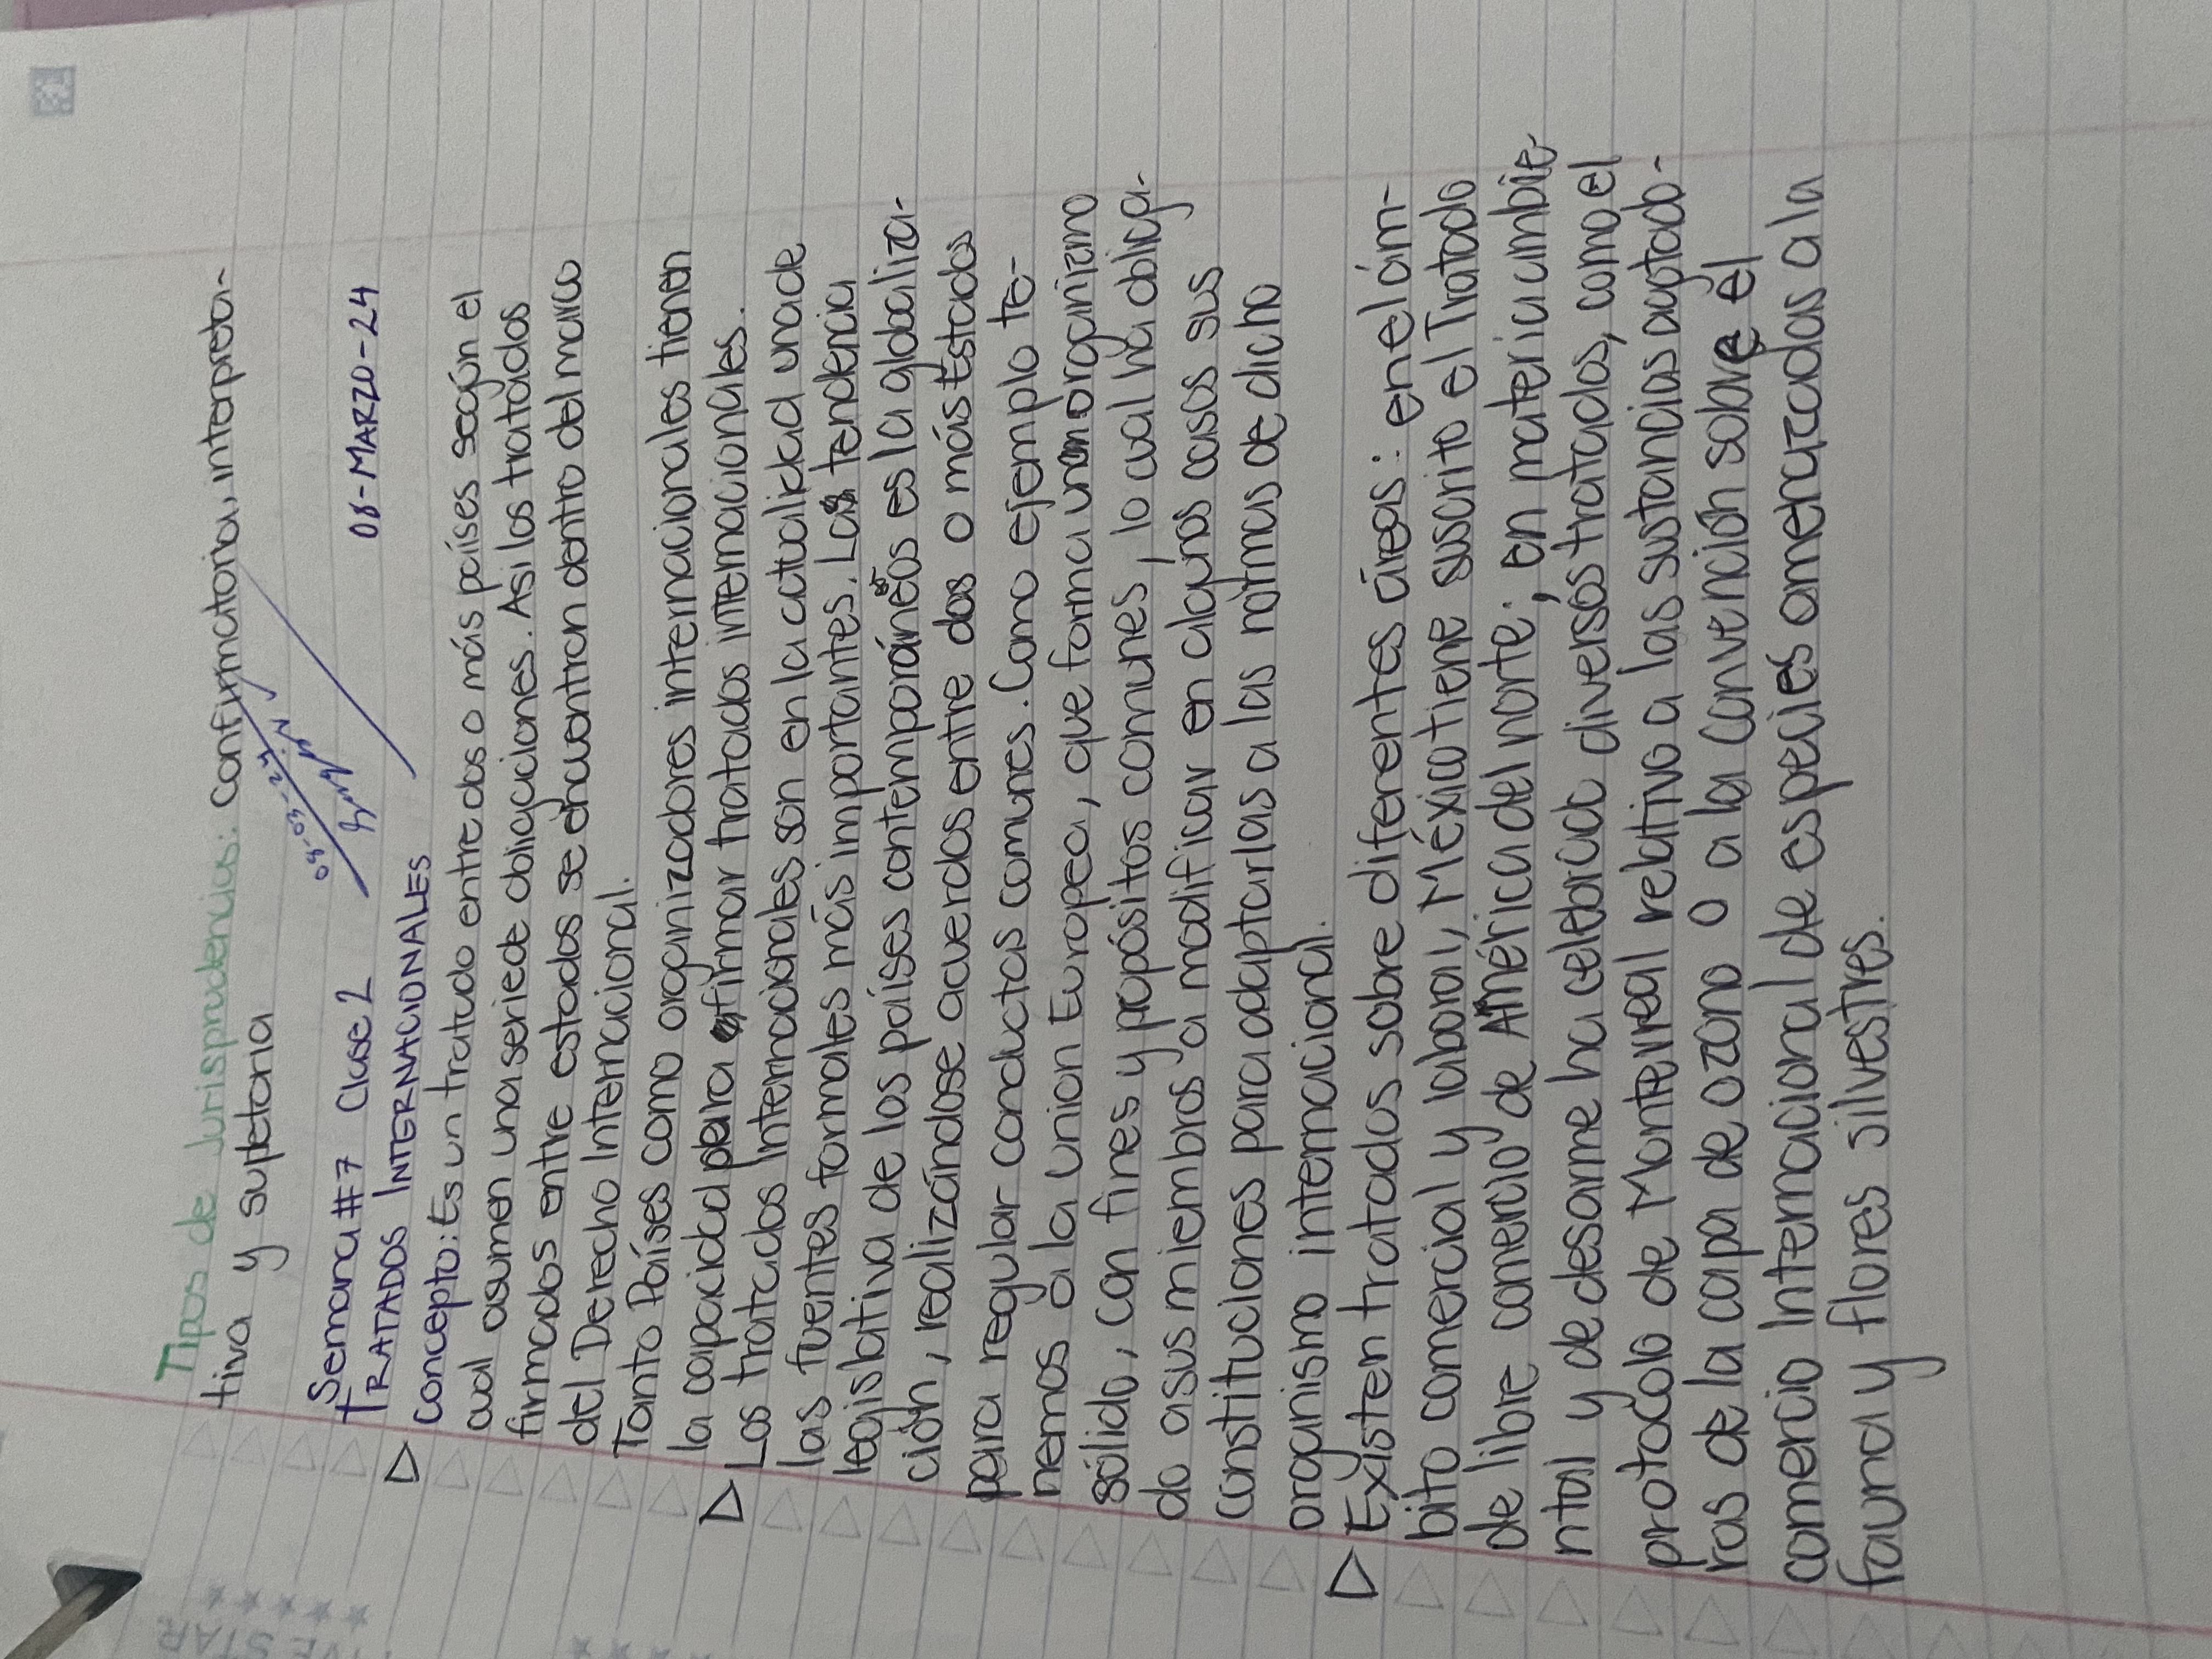 Tipos de Jurisprudencias: Confirmatoria, interpreta-
tiva y supletoria
04-03-24
Semana #7 Clase 2 08-MARZO-24
TRATADOS INTERNACIONALES
Concepto: Es un tratado entre dos o más países según el
cual asumen una serie de obligaciones. Asi los tratados
firmados entre estados se encuentran dentro del marco
del Derecho Internacional.
Tanto Países como organizadores internacionales tienen
la capacidad para firmar tratados internacionales.
Los tratados Internacionales son en la actualidad una de
las fuentes formales más importantes. La tendencia
legislativa de los países contemporáneos es la globaliza-
ción, realizándose acuerdos entre dos o más Estados
para regular conductas comunes. Como ejemplo te-
nemos a la union Europea, que forma un organizmo
sólido, con fines y propósitos comunes, lo cual ha obliga-
do a sus miembros a modificar en algunos casos sus
constituciones para adaptarlas a las normas de dicho
organismo internacional.
Existen tratados sobre diferentes áreas: en el ám-
bito comercial y laboral, México tiene suscrito el Tratado
de libre comercio de América del norte; en materia ambie-
ntal y de desarme ha celebrado diversos tratados, como el
protocolo de Montevreal relativo a las sustancias agotado-
ras de la capa de ozono o a la convención sobre el
comercio Internacional de especies amenazadas a la
fauna y flores silvestres.
VE STAR